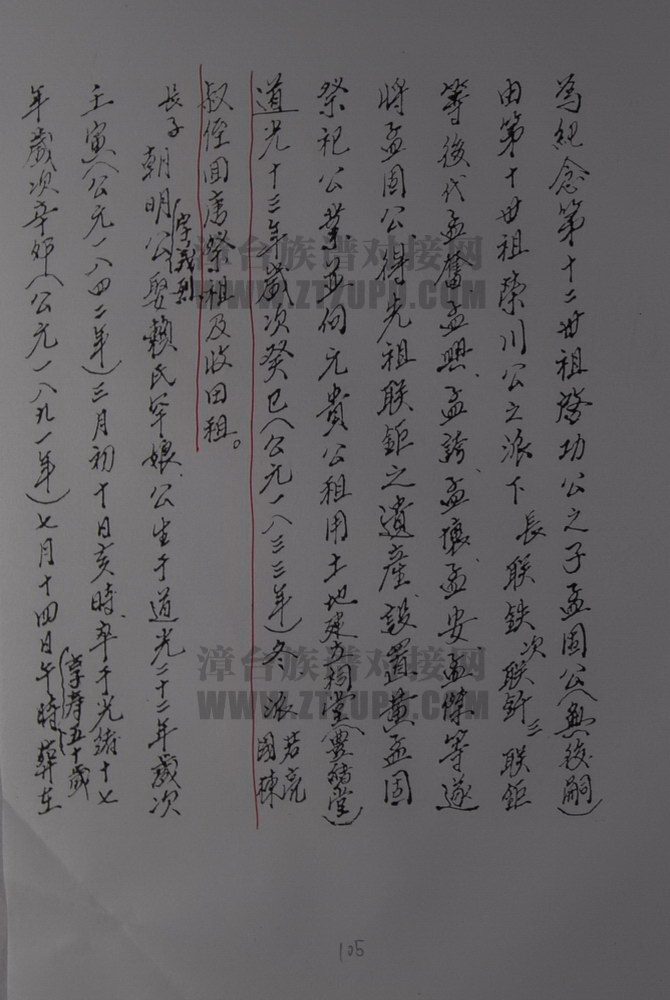 為紀念第十二世祖啓功公之子孟固公(無後嗣)
由第十世祖榮川公之派下長聯鉄次聯釬三聯鉅
等後代孟奮、孟興、孟誇、孟壤、孟安、孟傑等遂
將孟固公得先祖聯鉅之遺產設置黃孟固
祭祀公業並向元貴公租用土地建立祠堂(豐績堂)
道光十三年歲次癸巳(公元一八三三年)冬、派若亮國棟
叔侄回唐祭祖及收田租。
長子朝明公(字義烈)娶賴氏罕娘、公生于道光二十二年歲次
壬寅(公元一八四二年)三月初十日亥時、卒于光緒十七
年歲次辛卯(公元一八九一年)七月十四日午時(享壽五十歲)葬在
105
漳台族谱对接网
WWW.ZTZUPU.COM
漳台族谱对接网
WWW.ZTZUPU.COM